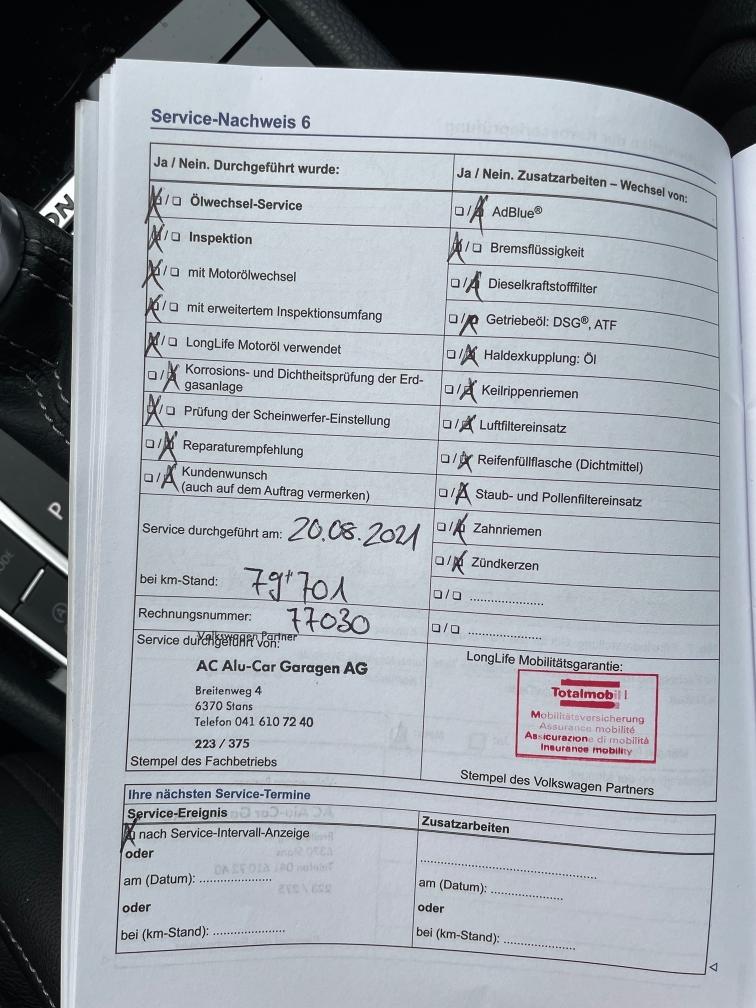 Service-Nachweis 6
Ja / Nein. Durchgeführt wurde:
☒/☐ Ölwechsel-Service
☒/☐ Inspektion
☒/☐ mit Motorölwechsel
☒/☐ mit erweitertem Inspektionsumfang
☒/☐ LongLife Motoröl verwendet
☐/☒ Korrosions- und Dichtheitsprüfung der Erd-
gasanlage
☒/☐ Prüfung der Scheinwerfer-Einstellung
☐/☒ Reparaturempfehlung
☐/☒ Kundenwunsch
(auch auf dem Auftrag vermerken)
Service durchgeführt am: 20.08.2021
bei km-Stand: 79'701
Rechnungsnummer: 77030
Service durchgeführt von:
Volkswagen Partner
AC Alu-Car Garagen AG
Breitenweg 4
6370 Stans
Telefon 041 610 72 40
223 / 375
Stempel des Fachbetriebs
Ja / Nein. Zusatzarbeiten – Wechsel von:
☐/☒ AdBlue®
☒/☐ Bremsflüssigkeit
☐/☒ Dieselkraftstofffilter
☐/☒ Getriebeöl: DSG®, ATF
☐/☒ Haldexkupplung: Öl
☐/☒ Keilrippenriemen
☐/☒ Luftfiltereinsatz
☐/☒ Reifenfüllflasche (Dichtmittel)
☐/☒ Staub- und Pollenfiltereinsatz
☐/☒ Zahnriemen
☐/☒ Zündkerzen
☐/☐ ......................
☐/☐ ......................
LongLife Mobilitätsgarantie:
Totalmobil!
Mobilitätsversicherung
Assurance mobilité
Assicurazione di mobilità
Insurance mobility
Stempel des Volkswagen Partners
Ihre nächsten Service-Termine
Service-Ereignis
☒ nach Service-Intervall-Anzeige
oder
am (Datum): ......................
oder
bei (km-Stand): ......................
Zusatzarbeiten
......................................................
am (Datum): ......................
oder
bei (km-Stand): ......................
P